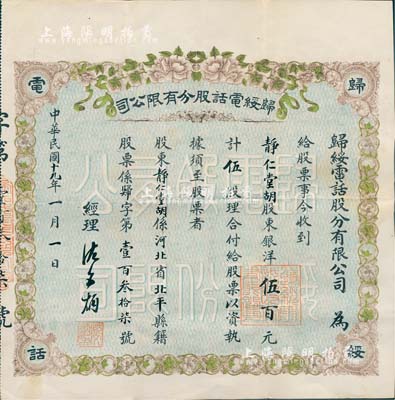 上海陽明拍賣
歸綏電話股分有限公司
歸
電
綏
話
歸綏電話股分有限公司 為
給股票事今收到
靜仁堂胡股東銀洋伍百元
計伍股理合付給股票以資執
據須至股票者
股東靜仁堂胡係河北省北平縣籍
股票係歸字第壹百叁拾柒號
經理
中華民國十九年一月一日